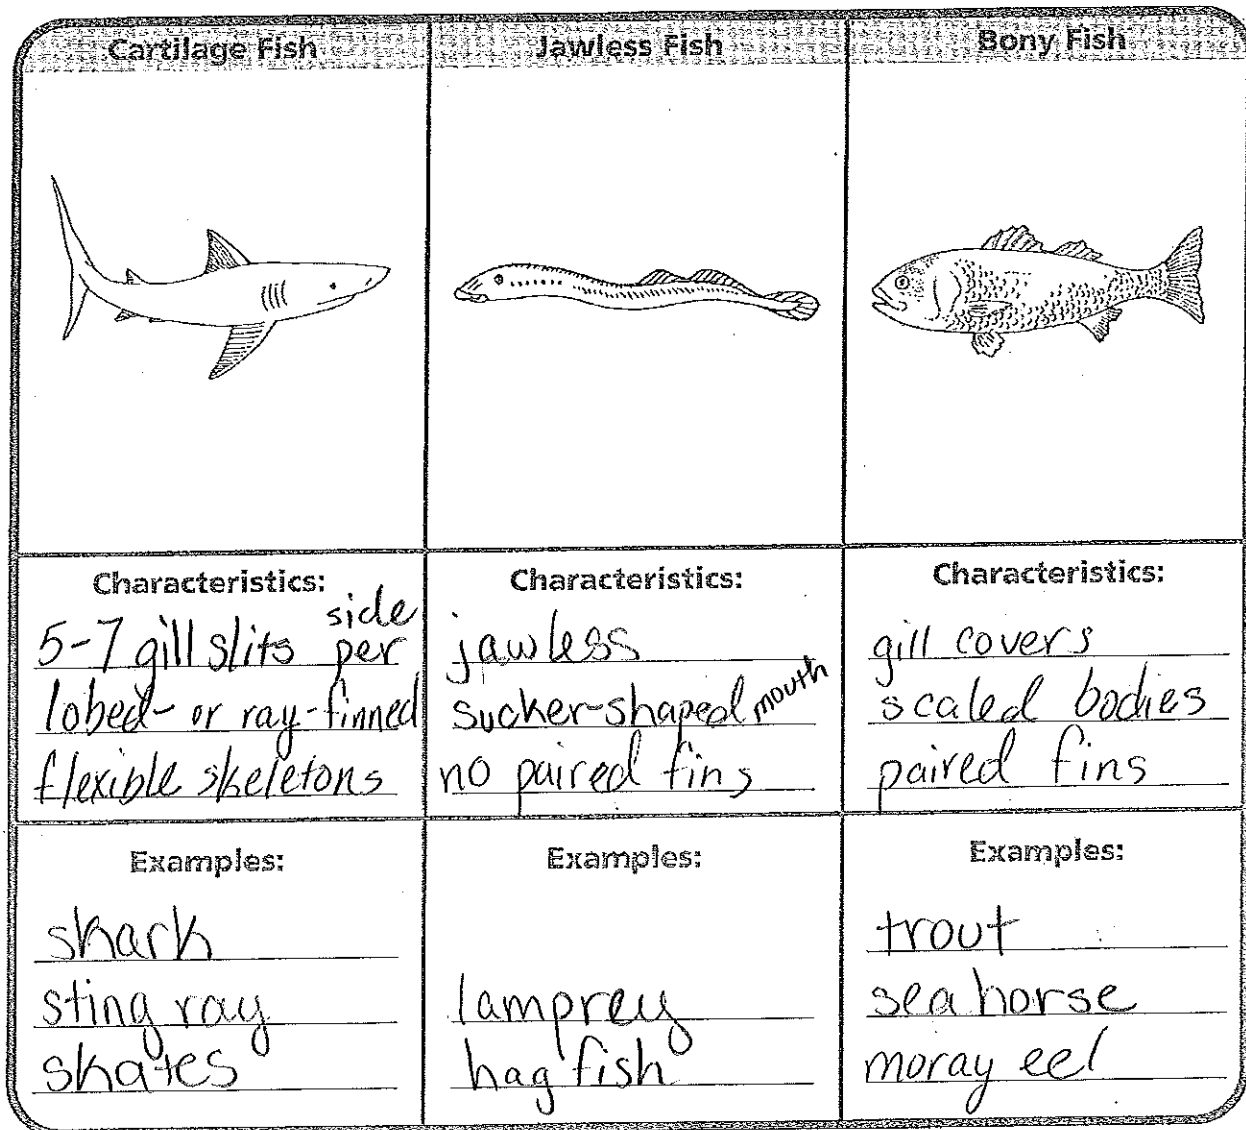 Cartilage Fish
Jawless Fish
Bony Fish
Characteristics:
5-7 gill slits per side
lobed- or ray-finned
flexible skeletons
Characteristics:
jawless
sucker-shaped mouth
no paired fins
Characteristics:
gill covers
scaled bodies
paired fins
Examples:
shark
sting ray
skates
Examples:
lamprey
hag fish
Examples:
trout
sea horse
moray eel